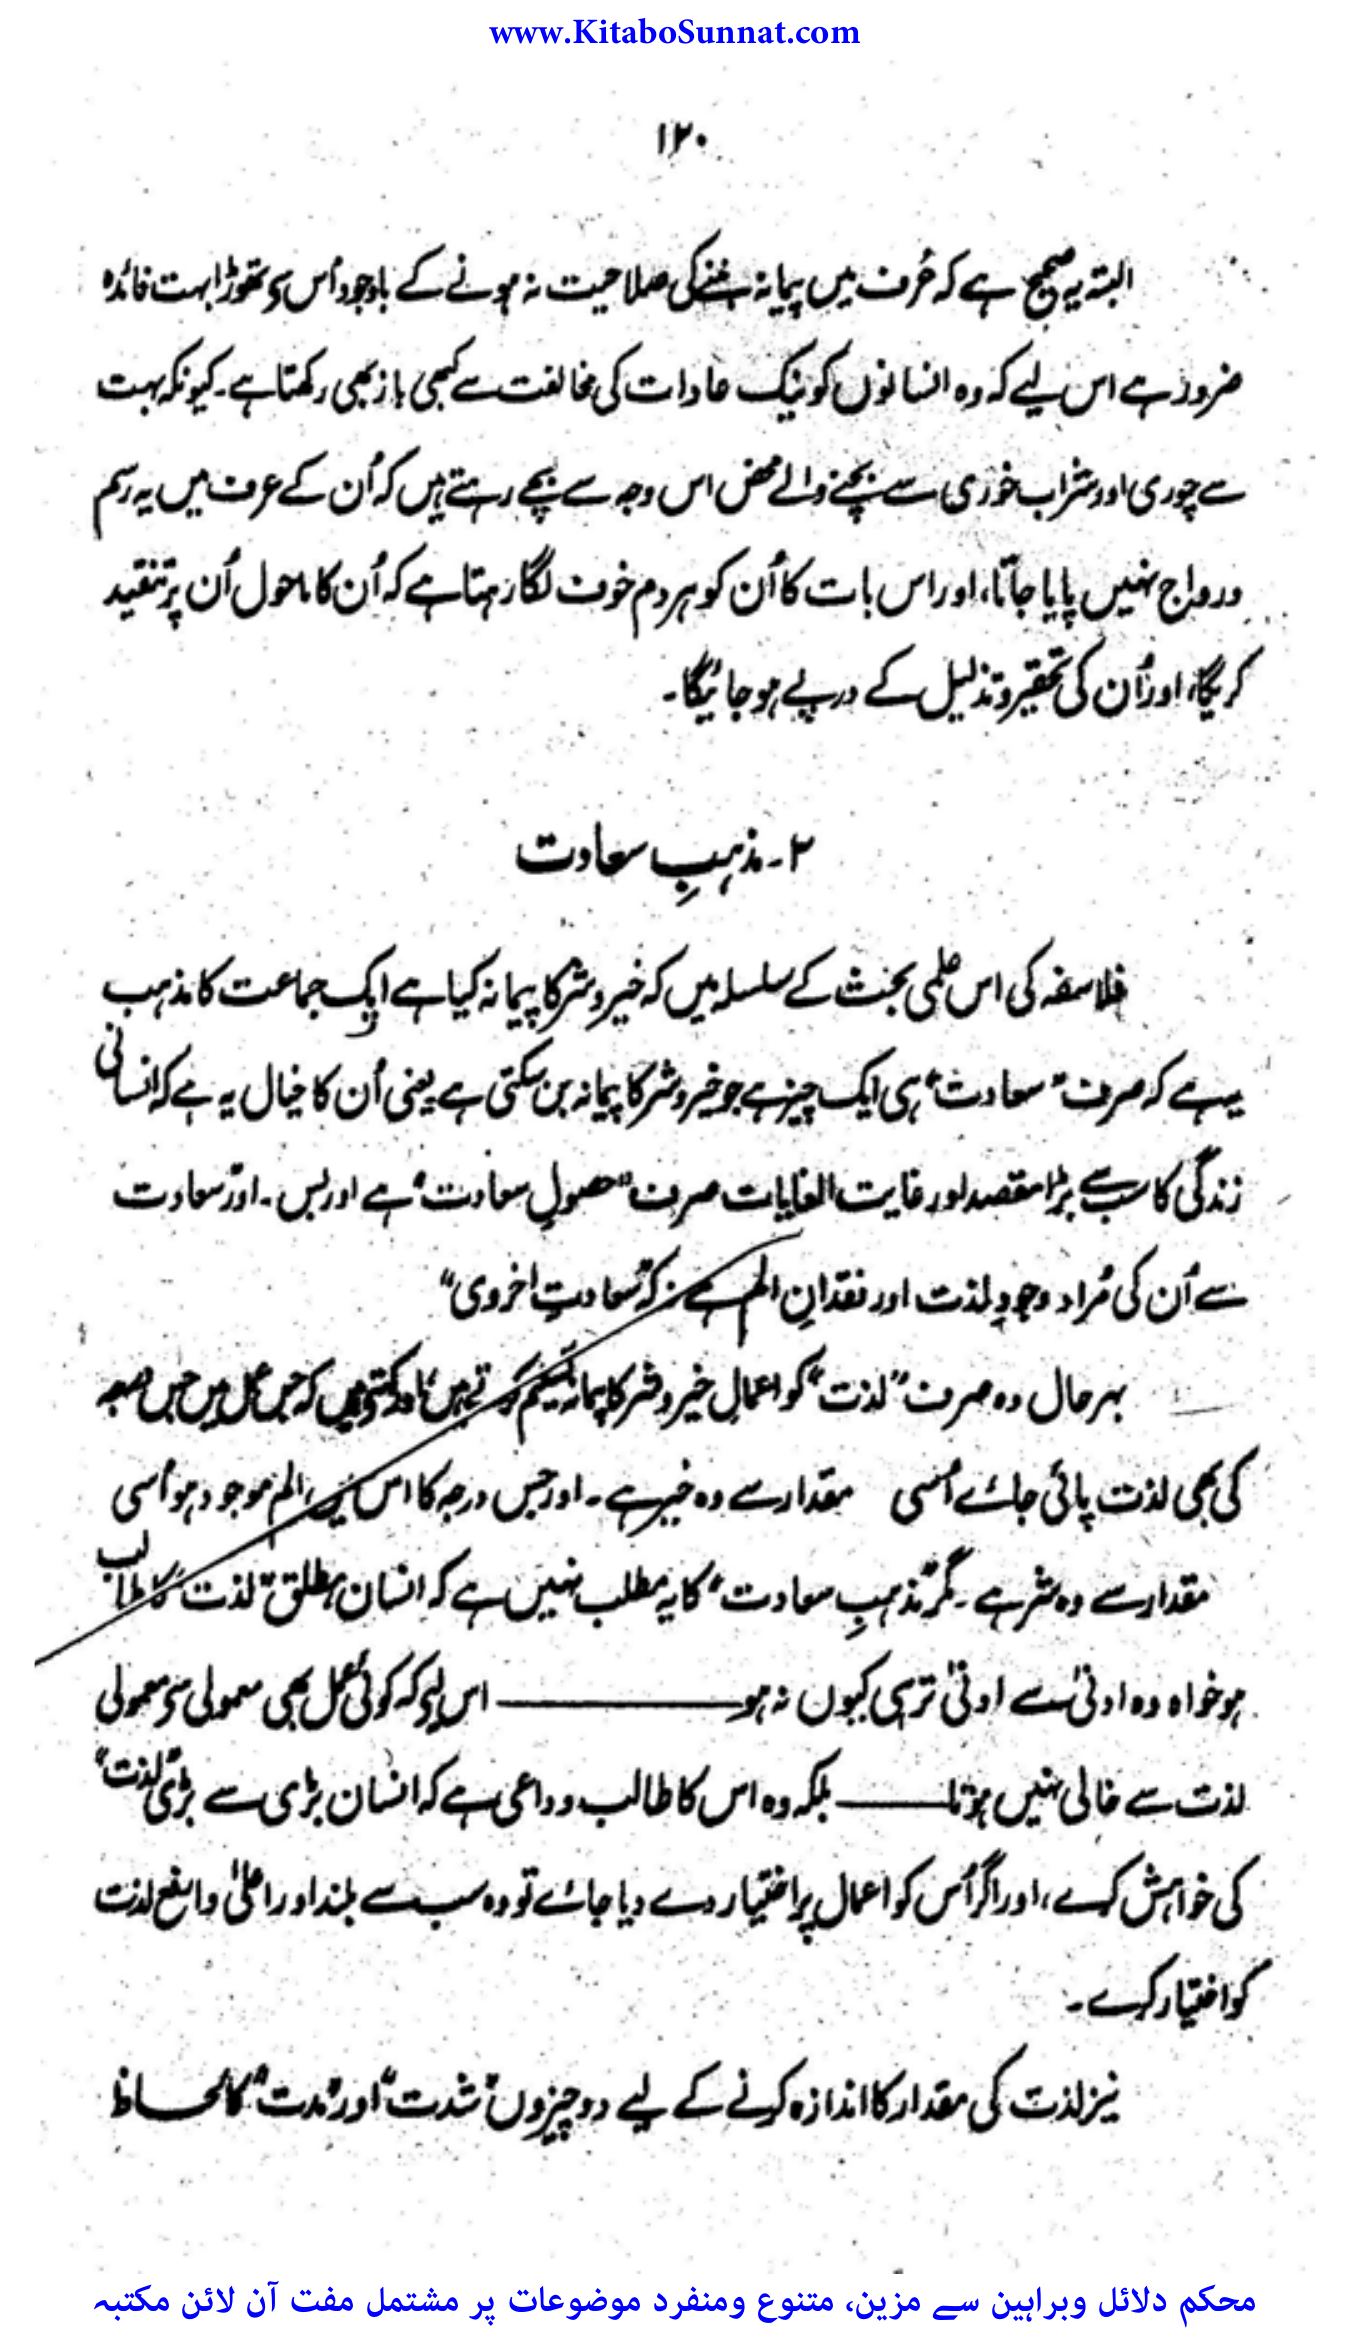 www.KitaboSunnat.com
۱۲۰
البتہ یہ صحیح ہے کہ عُرف میں پیمانہ بننے کی صلاحیت نہ ہونے کے باوجود اُس سے تھوڑا بہت فائدہ
ضرور ہے اس لیے کہ وہ انسانوں کو نیک عادات کی مخالفت سے کبھی باز بھی رکھتا ہے۔ کیونکہ بہت
سے چوری اور شراب خوری سے بچنے والے محض اس وجہ سے بچے رہتے ہیں کہ اُن کے عرف میں یہ رسم
و رواج نہیں پایا جاتا، اور اس بات کا اُن کو ہر دم خوف لگا رہتا ہے کہ اُن کا ماحول اُن پر تنقید
کریگا، اور اُن کی تحقیر و تذلیل کے درپے ہو جائیگا۔
۲۔ مذہبِ سعادت
فلاسفہ کی اس علمی بحث کے سلسلہ میں کہ خیر و شر کا پیمانہ کیا ہے ایک جماعت کا مذہب
یہ ہے کہ صرف "سعادت" ہی ایک چیز ہے جو خیر و شر کا پیمانہ بن سکتی ہے یعنی اُن کا خیال یہ ہے کہ انسانی
زندگی کا سب سے بڑا مقصد اور غایت الغایات صرف "حصولِ سعادت" ہے اور بس۔ اور سعادت
سے اُن کی مُراد وجودِ لذت اور فقدانِ الم ہے نہ کہ "سعادتِ اخروی"
بہر حال وہ صرف "لذت" کو اعمالِ خیر و شر کا پیمانہ تسلیم کرتے ہیں اور کہتے ہیں کہ جس عمل میں جس
کی بھی لذت پائی جائے اُسی مقدار سے وہ خیر ہے۔ اور جس درجہ کا اس میں الم موجود ہو اُسی
مقدار سے وہ شر ہے۔ مگر "مذہبِ سعادت" کا یہ مطلب نہیں ہے کہ انسان مطلق "لذت" کا طالب
ہو خواہ وہ ادنیٰ سے ادنیٰ تر ہی کیوں نہ ہو ــــــــ اس لیے کہ کوئی عمل بھی معمولی سے معمولی
لذت سے خالی نہیں ہوتا ــــــــ بلکہ وہ اس کا طالب و داعی ہے کہ انسان بڑی سے بڑی "لذت"
کی خواہش کرے، اور اگر اُس کو اعمال پر اختیار دے دیا جائے تو وہ سب سے بلند اور اعلیٰ و ارفع لذت
کو اختیار کرے۔
نیز لذت کی مقدار کا اندازہ کرنے کے لیے دو چیزوں "شدت" اور "مدت" کا لحاظ
محکم دلائل وبراہین سے مزین، متنوع ومنفرد موضوعات پر مشتمل مفت آن لائن مکتبہ